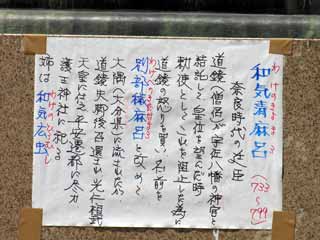 わけのきよまろ
和気清麻呂
(733～799)
奈良時代の文臣
道鏡(僧侶)が宇佐八幡の神官と
結託して皇位を望んだ時
勅使としてこれを阻止した為に
道鏡の怒りを買い名前を
別部穢麻呂と改めて
大隅(大分県)に流されたが
道鏡失脚後召還され光仁桓武
天皇に仕え平安遷都に尽力
護王神社に祀る
わけのひろむし
姉は和気広虫